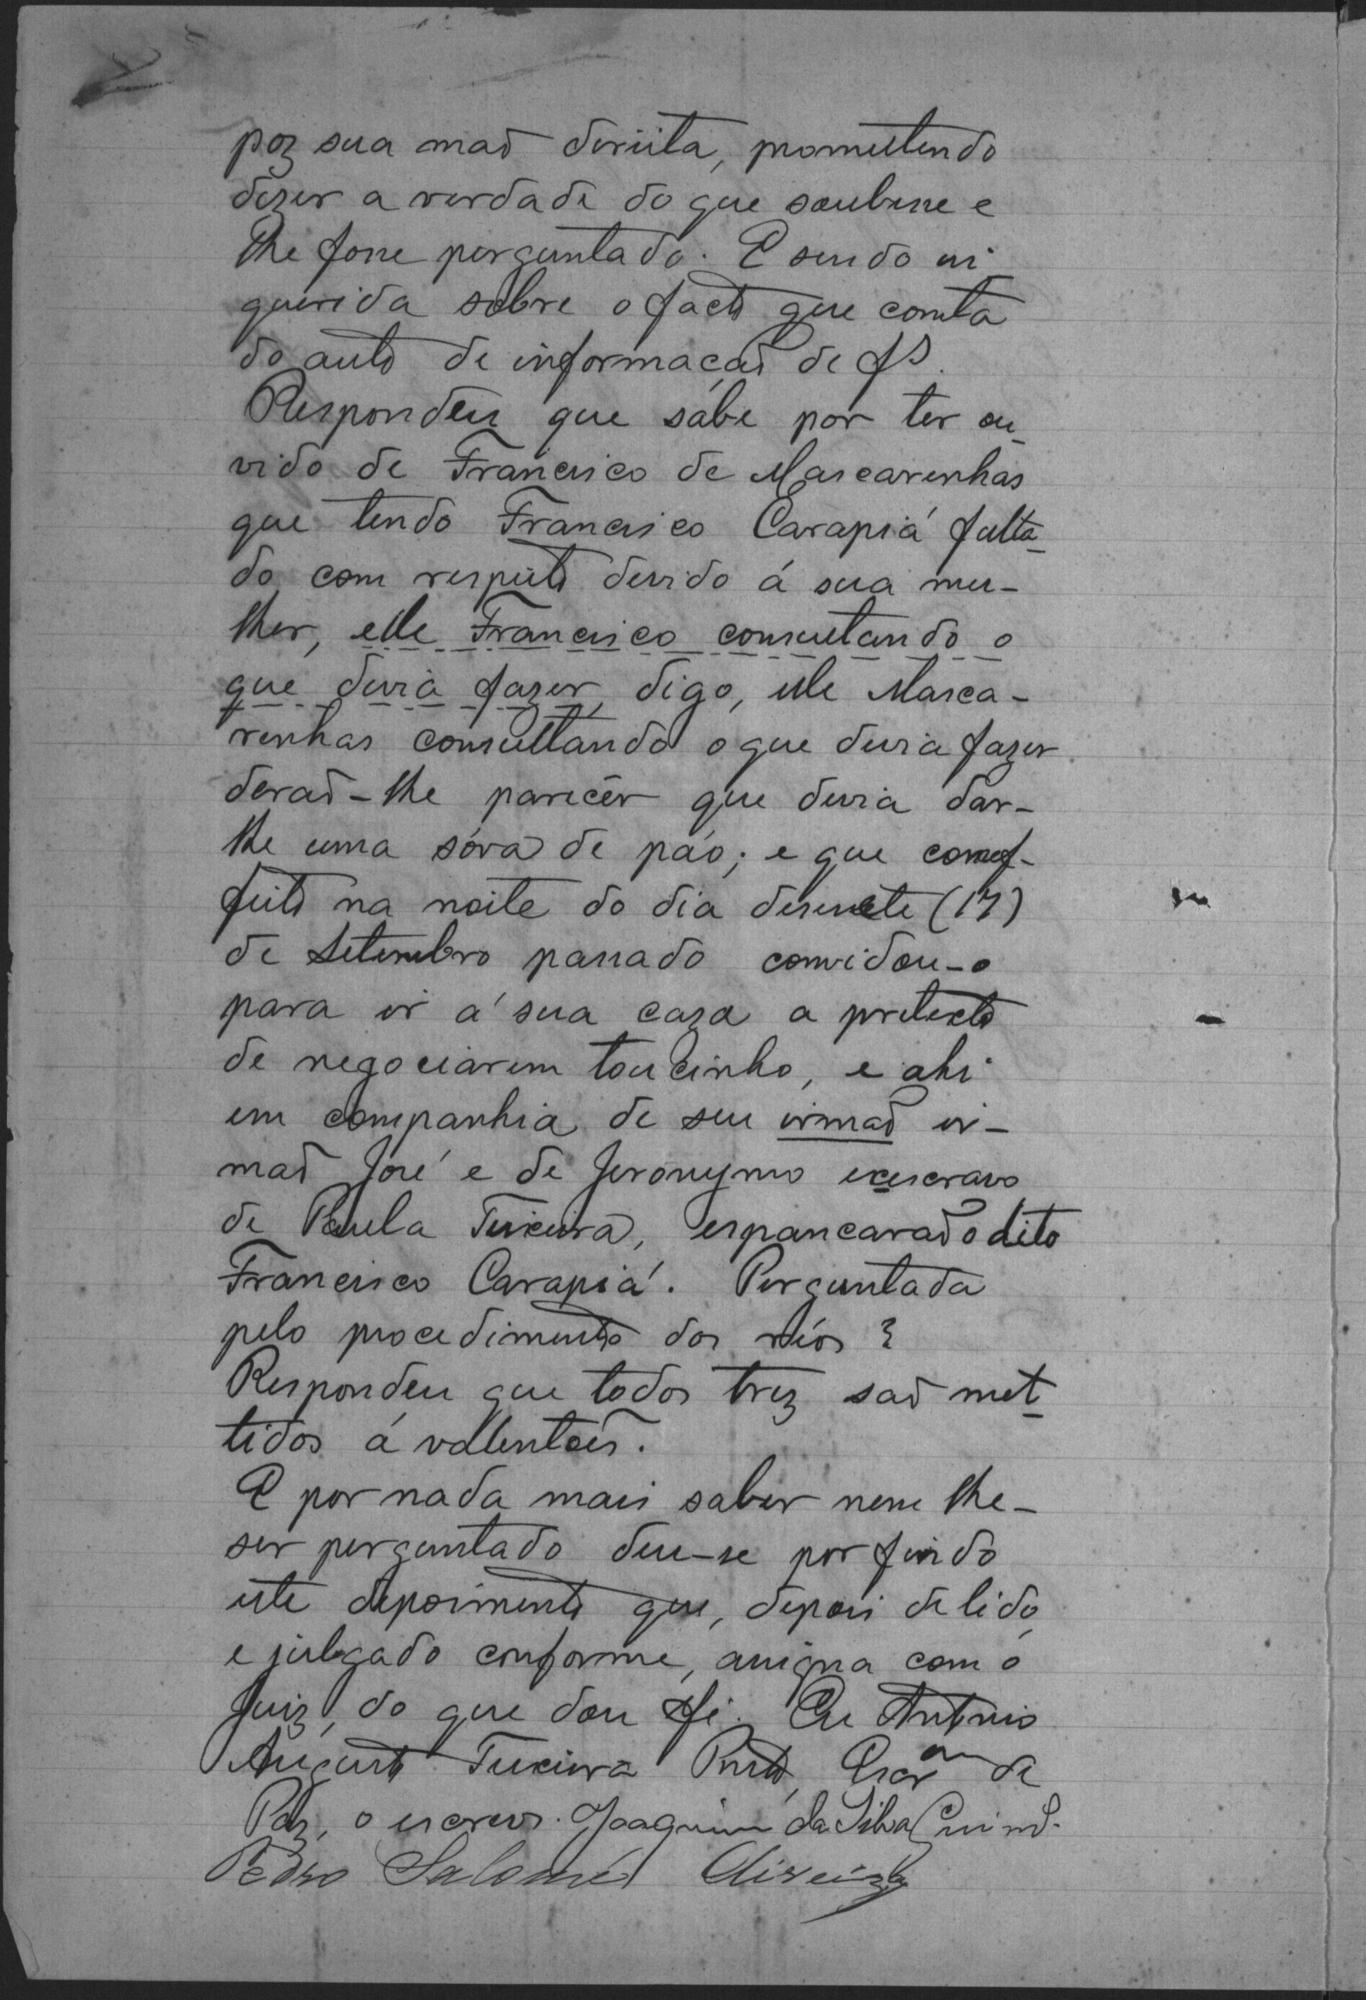 poz sua maõ direita, promettendo
dizer a verdade do que soubesse e
lhe fosse perguntado. E sendo in
querida sobre o facto que consta
do auto de informaçaõ de fs.
Respondeu que sabe por ter ou-
vido de Francisco de Mascarenhas
que tendo Francisco Carapiá falta-
do com respeito devido á sua mu-
lher, elle Francisco consultando o
que devia fazer, digo, elle Masca-
renhas consultando o que devia fazer
deraõ-lhe parecêr que devia dar-
lhe uma sóva de páo; e que comef-
feito na noite do dia desesete (17)
de Setembro passado convidou-o
para ir á sua caza a pretexto
de negociarem toucinho, e ahi
em companhia de seu irmaõ ir-
maõ José e de Jeronymo exescravo
de Paula Teixeira, espancaraõ o dito
Francisco Carapiá. Perguntada
pelo procedimento dos réos?
Respondeu que todos trez saõ met-
tidos á vallentões.
E por nada mais saber nem lhe-
ser perguntado deu-se por findo
este depoimento que, depois de lido,
e julgado conforme, assigna com o
Juiz, do que dou fé. Eu Antonio
Augusto Teixeira Pinto, Escr.am de
Paz, o escrevi. Joaquim da Silva
Pedro Salomé Oliveira